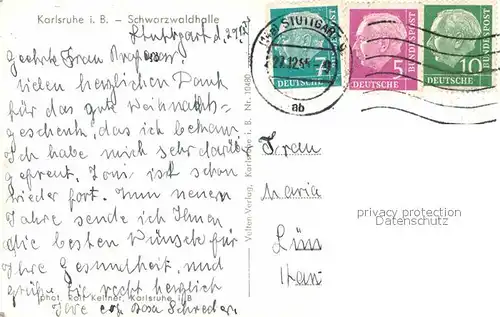 Karlsruhe i. B. – Schwarzwaldhalle
Stuttgart d. 29.12.
Geehrte Frau Professor.
Vielen herzlichen Dank
für das gute Weihnachts-
geschenk, das ich bekam.
Ich habe mich sehr darüber
gefreut. Toni ist schon
wieder fort. Zum neuen
Jahre sende ich Ihnen
die besten Wünsche für
Ihre Gesundheit, und
grüße Sie recht herzlich
phot. Rolf Kellner, Karlsruhe i. B
Ihre Rosa Schreder.
Volten-Verlag, Karlsruhe i. B. Nr. 10480
STUTTGART 9
27.12.55
ab
7
DEUTSCHE
BUNDESPOST
5
DEUTSCHE
BUNDESPOST
10
DEUTSCHE
BUNDESPOST
Frau
Maria
privacy protection
Datenschutz